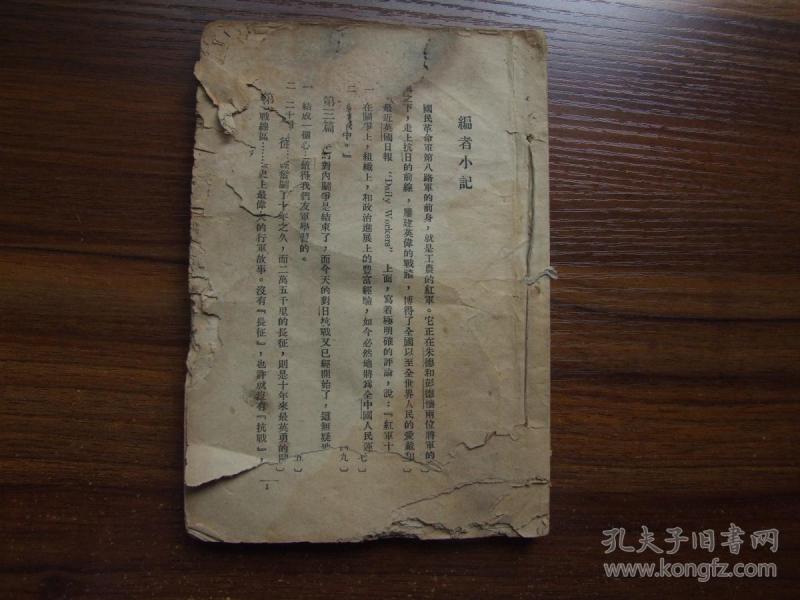 編者小記
國民革命軍第八路軍的前身，就是工農的紅軍。它正在朱德和彭德懷兩位將軍的
之下，走上抗日的前線，屢建英偉的戰蹟，博得了全國以至全世界人民的愛戴和
『最近英國日報 "Daily Workers" 上面，寫着極明確的評論，說：『紅軍十
一 在鬬爭上，組織上，和政治進展上的豐富經驗，如今必然地將爲全中國人民運 七〕
二 中。』 『九〕
第三篇 的對內鬬爭是結束了，而今天的對日抗戰又已經開始了，這無疑地
一 結成一個心 值得我們友軍學習的。 五〕
二 二十 征 奮鬬了十年之久，而二萬五千里的長征，則是十年來最英勇的鬬 〕
第 戰線區……史上最偉大的行軍故事。沒有『長征』，也許就沒有『抗戰』，
1
孔夫子旧書网
www.kongfz.com